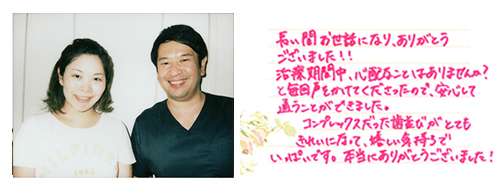 長い間お世話になり、ありがとう
ございました！！
治療期間中、心配なことはありませんか？
と毎回声をかけてくださったので、安心して
通うことができました。
コンプレックスだった歯並びがとても
きれいになって、嬉しい気持ちで
いっぱいです。本当にありがとうございました！
HILFIGER
1985